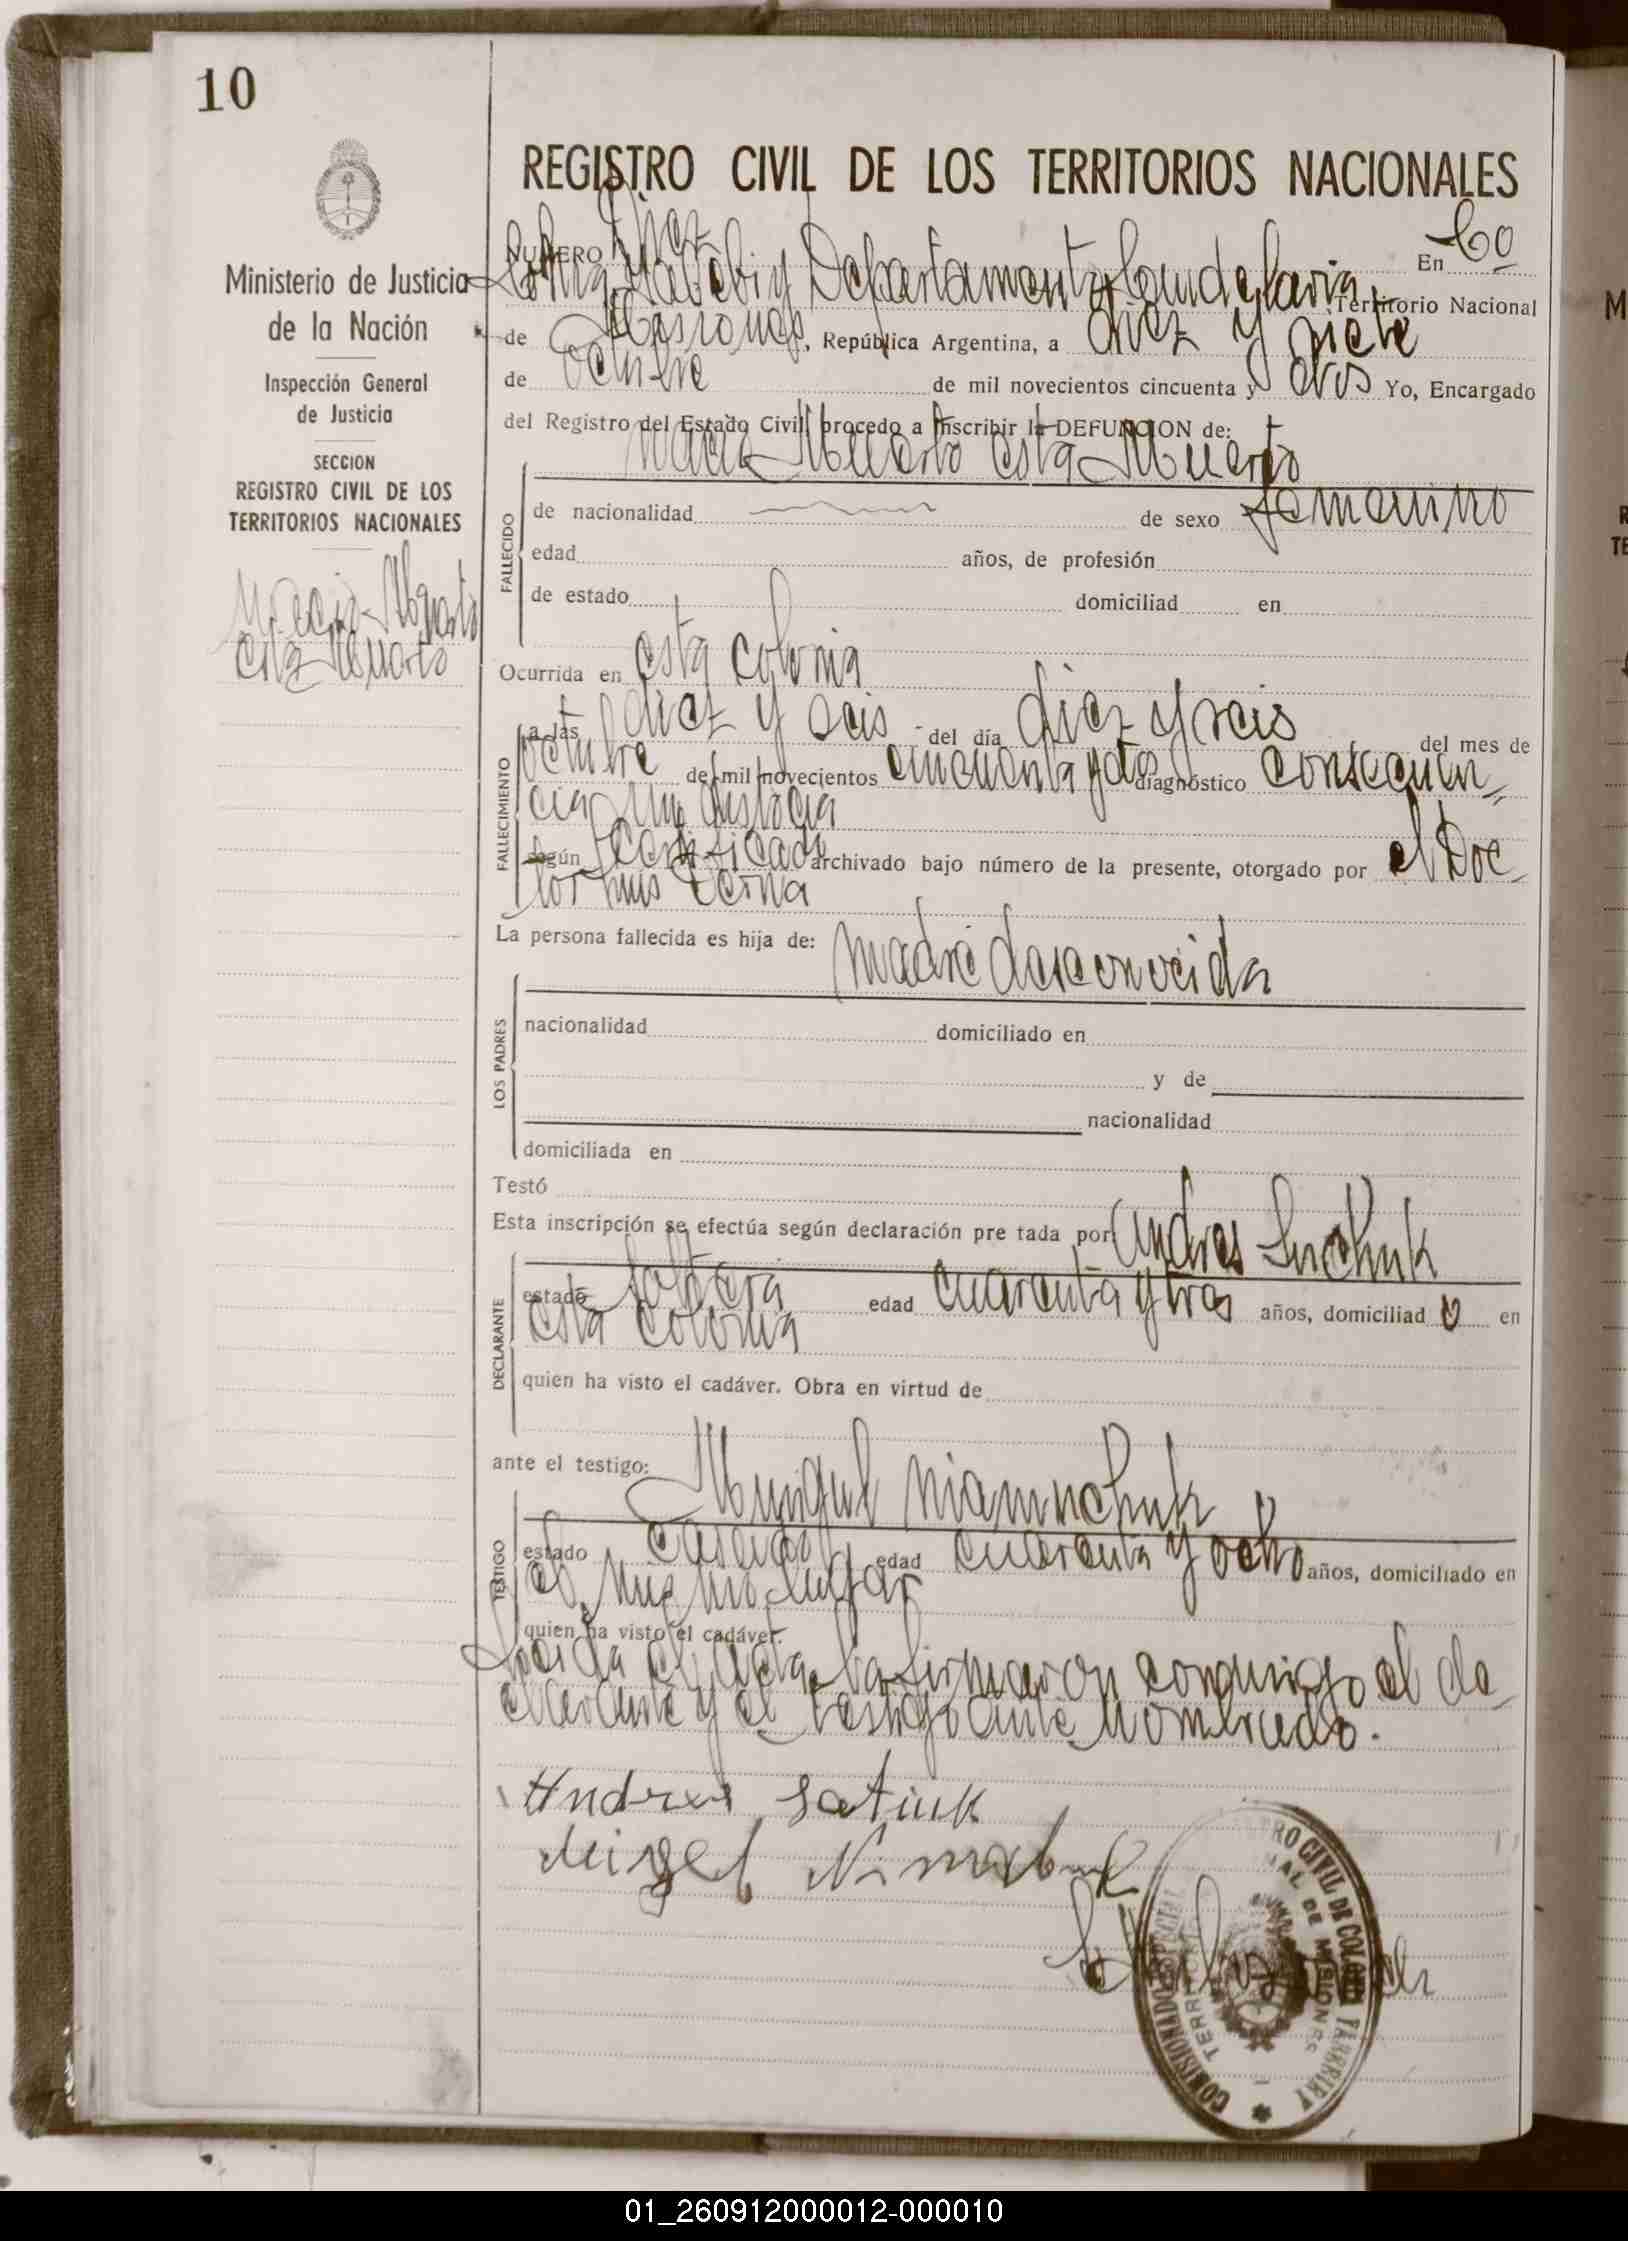 10
REGISTRO CIVIL DE LOS TERRITORIOS NACIONALES
Ministerio de Justicia
de la Nación
Inspección General
de Justicia
SECCION
REGISTRO CIVIL DE LOS
TERRITORIOS NACIONALES
esta Muerto
NUMERO Diez En Co
Departamento Candelaria Territorio Nacional
de Misiones, República Argentina, a diez y siete
de octubre de mil novecientos cincuenta y dos Yo, Encargado
del Registro del Estado Civil, procedo a inscribir la DEFUNCION de:
Muerto esta Muerto
FALLECIDO
de nacionalidad de sexo femenino
edad años, de profesión
de estado domiciliad en
Ocurrida en esta colonia
FALLECIMIENTO
a las diez y seis del día diez y seis del mes de
octubre de mil novecientos cincuenta y dos diagnóstico consecuen
cia distocia
según Certificado archivado bajo número de la presente, otorgado por el Doc
tor Luis
La persona fallecida es hija de: madre desconocida
LOS PADRES
nacionalidad domiciliado en
y de
nacionalidad
domiciliada en
Testó
Esta inscripción se efectúa según declaración pre tada por Andres
DECLARANTE
estado soltera edad cuarenta y tres años, domiciliad o en
esta colonia
quien ha visto el cadáver. Obra en virtud de
ante el testigo: Miguel
TESTIGO
estado casado edad cuarenta y ocho años, domiciliado en
el mismo lugar
quien ha visto el cadáver.
Leida el acta la firmaron conmigo el de
clarante y el testigo ante nombrado.
Andres Satiuk
Miguel
REGISTRO CIVIL DE COLONIA
TERRITORIO NACIONAL DE MISIONES
01_260912000012-000010